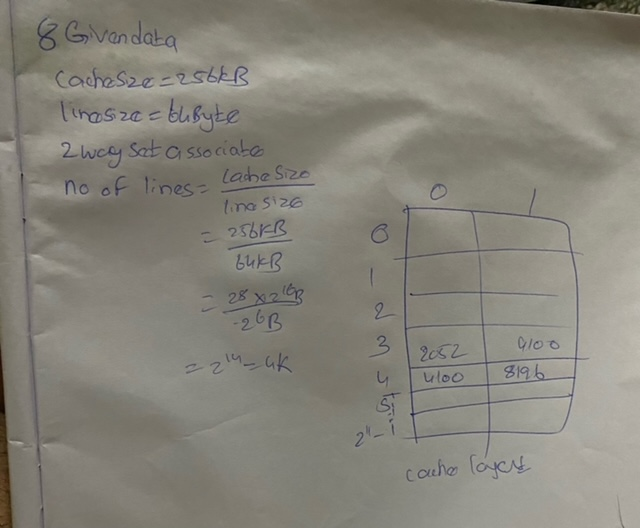 8 Givendata
cachesize=256kB
linesize=64Byte
2way set associate
no of lines= cachesize
linesize
= 256KB
64KB
= 28 x 2^10B
2^6B
= 2^12 = 4K
0 1
0
1
2
3 2052 4100
4 4100 8196
5
2^11-1
cache layout